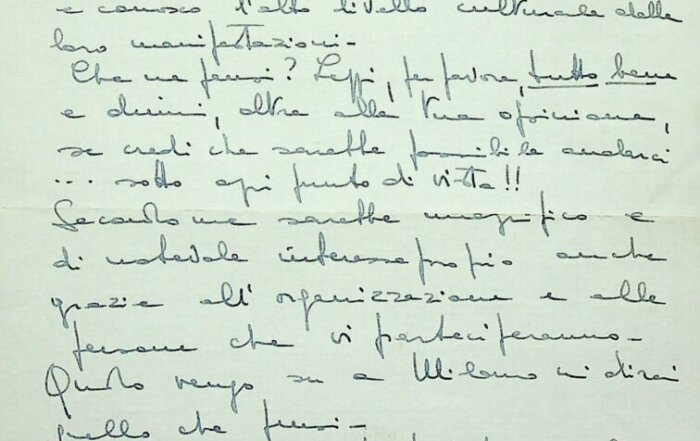 e conosco l'alto livello culturale delle
loro manifestazioni -
Che ne pensi? Leggi, per favore, tutto bene
e dimmi, oltre alla tua opinione,
se credi che sarebbe possibile andarci
... sotto ogni punto di vista!!
Secondo me sarebbe magnifico e
di notevole interesse proprio anche
grazie all'organizzazione e alle
persone che vi parteciperanno -
Quando vengo su a Milano mi dirai
quello che pensi -